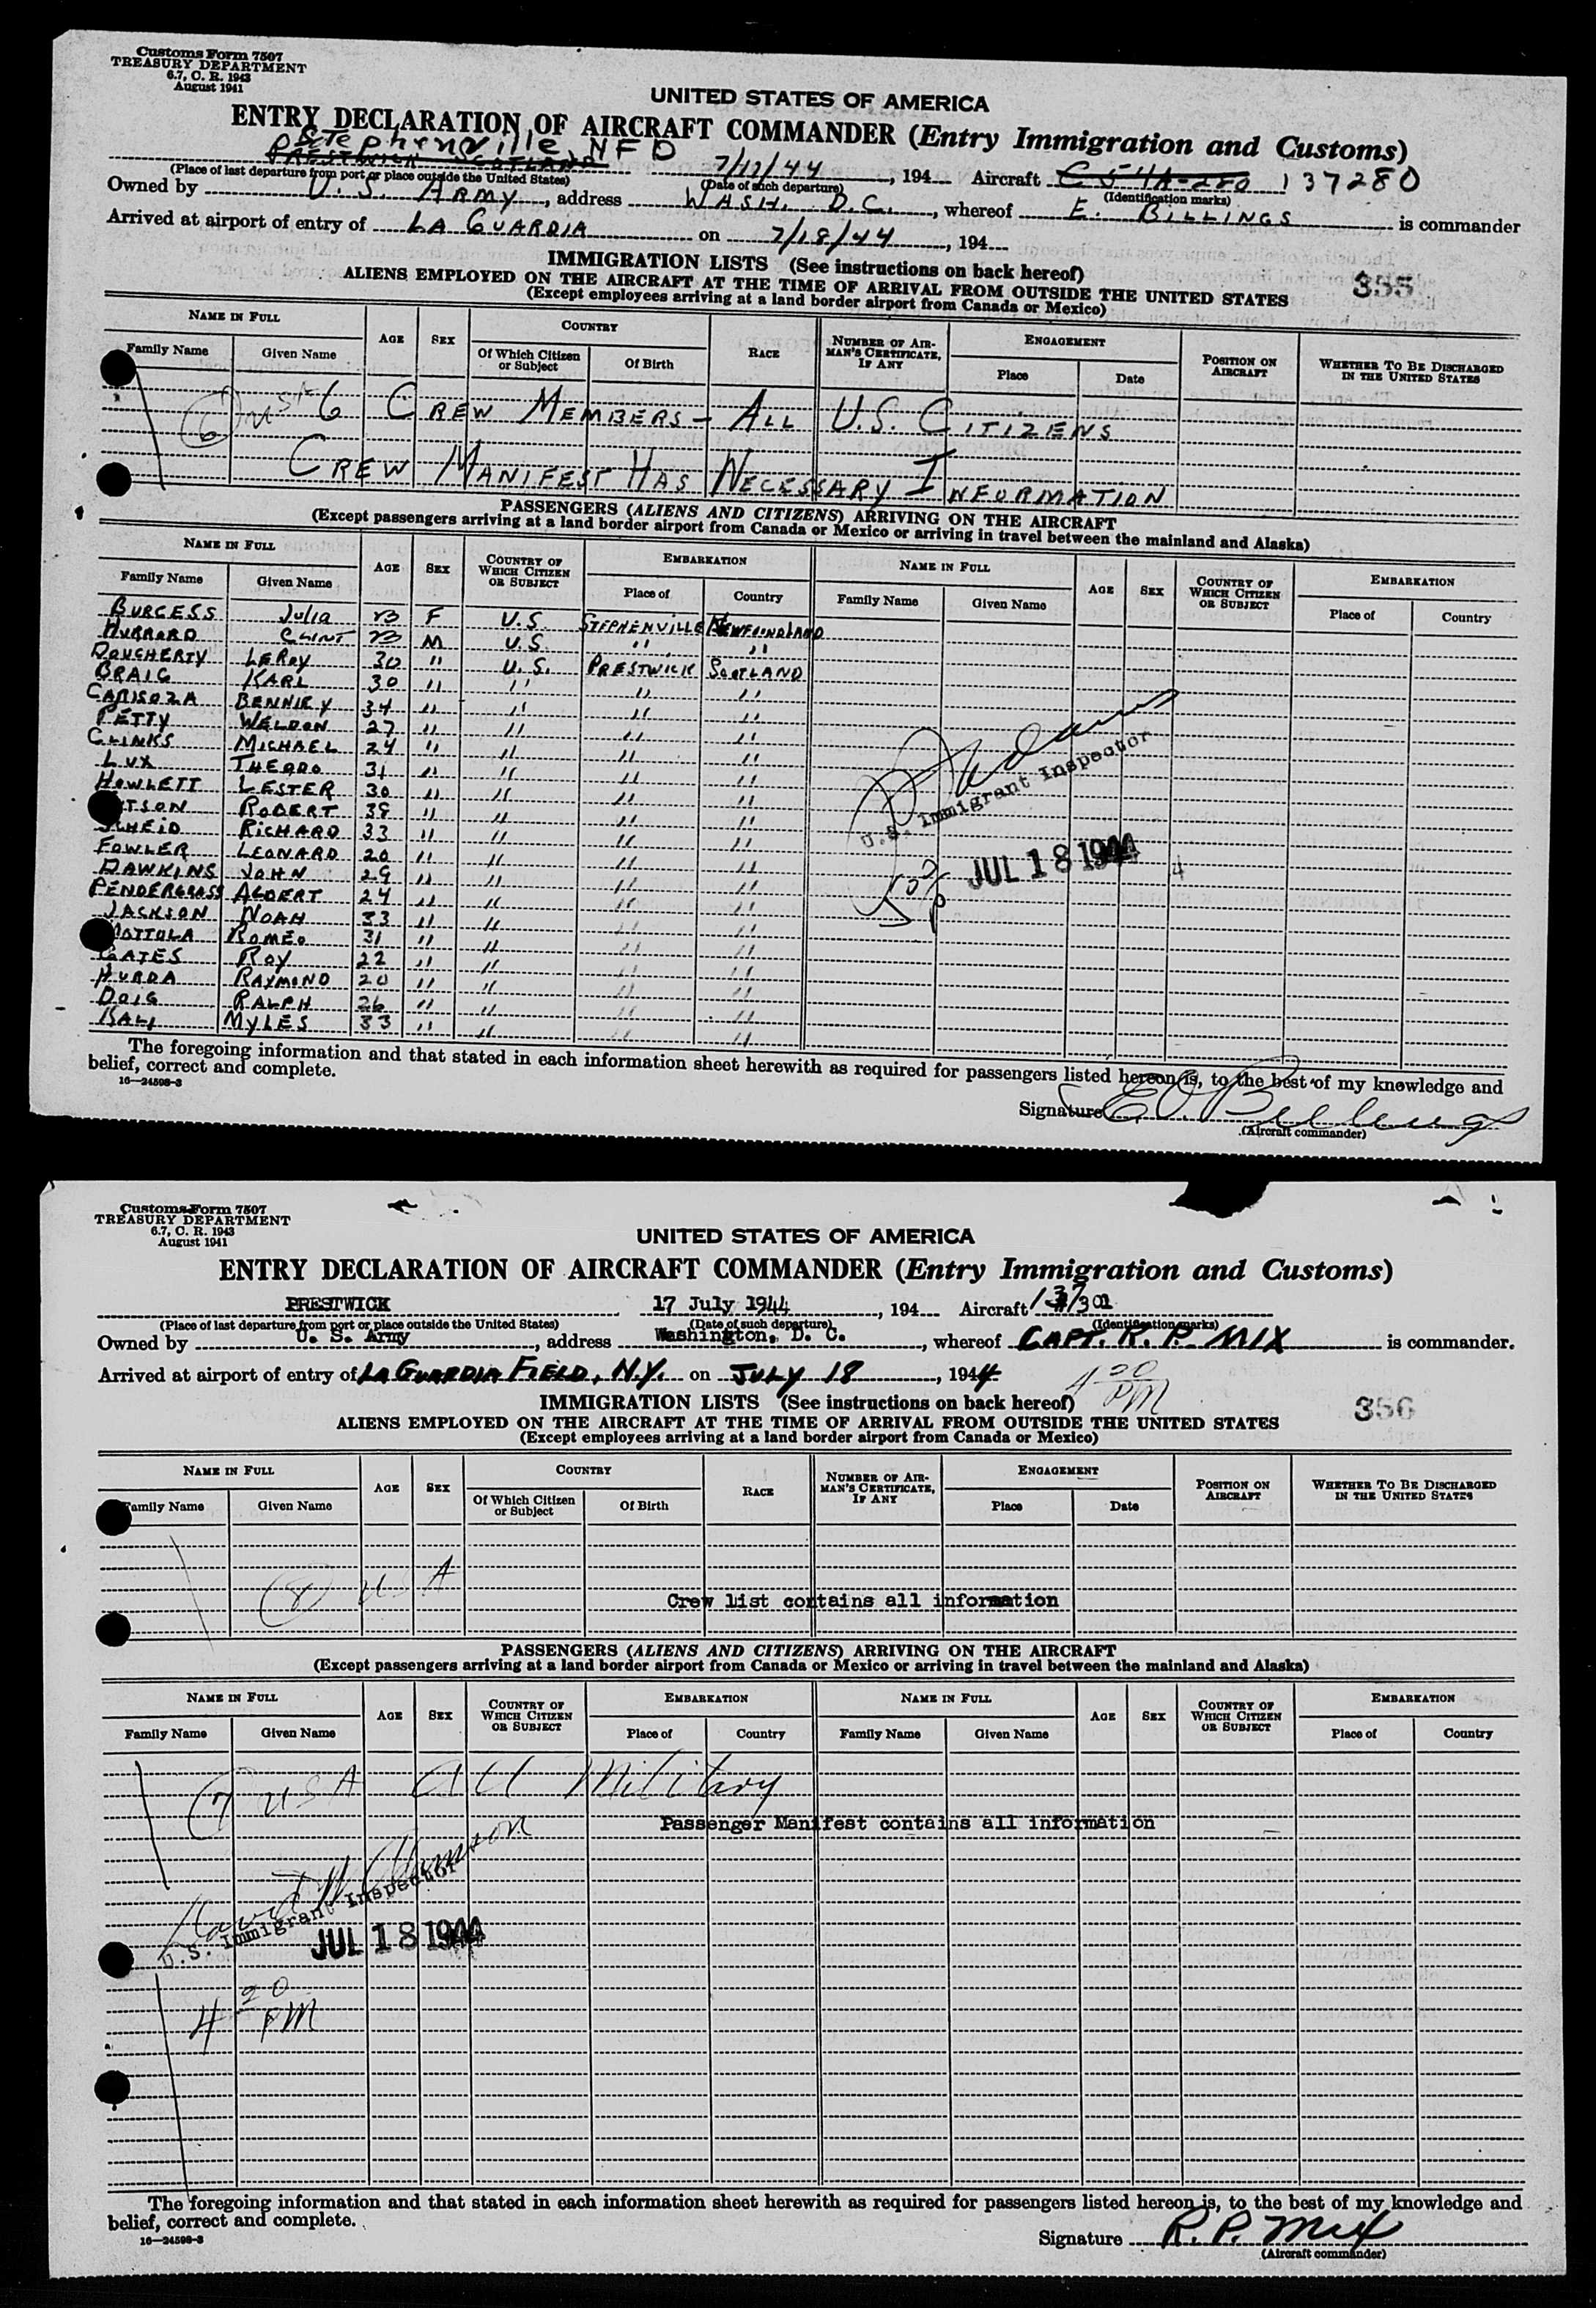 Customs Form 7507
TREASURY DEPARTMENT
6.7, C. R. 1943
August 1941
UNITED STATES OF AMERICA
ENTRY DECLARATION OF AIRCRAFT COMMANDER (Entry Immigration and Customs)
Stephenville, NFD
PRESTWICK SCOTLAND 7/17/44, 194 Aircraft C54A-280 137280
(Place of last departure from port or place outside the United States) (Date of such departure) (Identification marks)
Owned by U. S. ARMY, address WASH. D.C., whereof E. BILLINGS is commander
Arrived at airport of entry of LA GUARDIA on 7/18/44, 194
IMMIGRATION LISTS (See instructions on back hereof)
355
ALIENS EMPLOYED ON THE AIRCRAFT AT THE TIME OF ARRIVAL FROM OUTSIDE THE UNITED STATES
(Except employees arriving at a land border airport from Canada or Mexico)
NAME IN FULL AGE SEX COUNTRY RACE NUMBER OF AIRMAN'S CERTIFICATE, IF ANY ENGAGEMENT POSITION ON AIRCRAFT WHETHER TO BE DISCHARGED IN THE UNITED STATES
Family Name Given Name Of Which Citizen or Subject Of Birth Place Date
6 USA 6 CREW MEMBERS - ALL U.S. CITIZENS
CREW MANIFEST HAS NECESSARY INFORMATION
PASSENGERS (ALIENS AND CITIZENS) ARRIVING ON THE AIRCRAFT
(Except passengers arriving at a land border airport from Canada or Mexico or arriving in travel between the mainland and Alaska)
NAME IN FULL AGE SEX COUNTRY OF WHICH CITIZEN OR SUBJECT EMBARKATION NAME IN FULL AGE SEX COUNTRY OF WHICH CITIZEN OR SUBJECT EMBARKATION
Family Name Given Name Place of Country Family Name Given Name Place of Country
BURGESS Julia F U.S. STEPHENVILLE NEWFOUNDLAND
HUBBARD CLINT M U.S. " "
DOUGHERTY LEROY 30 " U.S. PRESTWICK SCOTLAND
BRAIG KARL 30 " " " "
CARISOZA BENNIE Y 34 " " " "
PETTY WELDON 27 " " " "
CLINKS MICHAEL 24 " " " "
LUX THEODO 31 " " " "
HOWLETT LESTER 30 " " " "
TSON ROBERT 38 " " " "
SCHEID RICHARD 33 " " " "
FOWLER LEONARD 20 " " " "
DAWKINS JOHN 29 " " " "
PENDERGRASS ALBERT 24 " " " "
JACKSON NOAH 33 " " " "
MOTTOLA ROMEO 31 " " " "
GATES ROY 22 " " " "
HURDA RAYMOND 20 " " " "
DOIG RALPH 26 " " " "
BALL MYLES 33 " " " "
U.S. Immigrant Inspector
JUL 18 1944
The foregoing information and that stated in each information sheet herewith as required for passengers listed hereon is, to the best of my knowledge and
belief, correct and complete.
16-24598-3
Signature E O Billings
(Aircraft commander)
Customs Form 7507
TREASURY DEPARTMENT
6.7, C. R. 1943
August 1941
UNITED STATES OF AMERICA
ENTRY DECLARATION OF AIRCRAFT COMMANDER (Entry Immigration and Customs)
PRESTWICK 17 July 1944, 194 Aircraft 137301
(Place of last departure from port or place outside the United States) (Date of such departure) (Identification marks)
Owned by U. S. Army, address Washington, D. C., whereof CAPT. R. P. MIX is commander.
Arrived at airport of entry of LA GUARDIA FIELD, N.Y. on JULY 18, 1944
4 20 PM
IMMIGRATION LISTS (See instructions on back hereof)
356
ALIENS EMPLOYED ON THE AIRCRAFT AT THE TIME OF ARRIVAL FROM OUTSIDE THE UNITED STATES
(Except employees arriving at a land border airport from Canada or Mexico)
NAME IN FULL AGE SEX COUNTRY RACE NUMBER OF AIRMAN'S CERTIFICATE, IF ANY ENGAGEMENT POSITION ON AIRCRAFT WHETHER TO BE DISCHARGED IN THE UNITED STATES
Family Name Given Name Of Which Citizen or Subject Of Birth Place Date
8 USA
Crew list contains all information
PASSENGERS (ALIENS AND CITIZENS) ARRIVING ON THE AIRCRAFT
(Except passengers arriving at a land border airport from Canada or Mexico or arriving in travel between the mainland and Alaska)
NAME IN FULL AGE SEX COUNTRY OF WHICH CITIZEN OR SUBJECT EMBARKATION NAME IN FULL AGE SEX COUNTRY OF WHICH CITIZEN OR SUBJECT EMBARKATION
Family Name Given Name Place of Country Family Name Given Name Place of Country
7 USA all Military
Passenger Manifest contains all information
David
U.S. Immigrant Inspector
JUL 18 1944
4 20 PM
The foregoing information and that stated in each information sheet herewith as required for passengers listed hereon is, to the best of my knowledge and
belief, correct and complete.
16-24598-3
Signature R. P. Mix
(Aircraft commander)